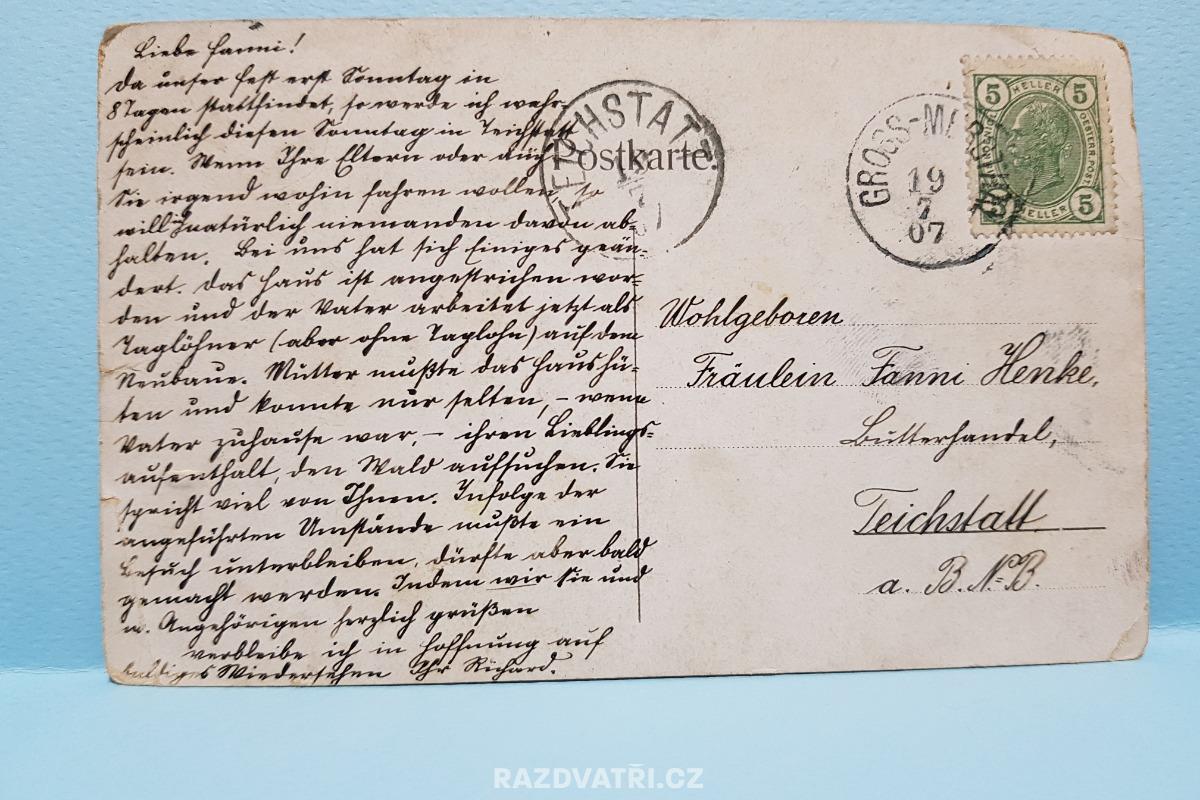 Liebe Fanni!
Da unser Fest erst Sonntag in
8 Tagen stattfindet, so werde ich wahr-
scheinlich diesen Sonntag in Teichstatt
sein. Wenn Ihre Eltern oder auch
Sie irgend wohin fahren wollen, so
will natürlich niemanden davon ab-
halten. Bei uns hat sich Einiges geän-
dert. Das Haus ist angestrichen wor-
den und der Vater arbeitet jetzt als
Taglöhner (aber ohne Taglohn) auf dem
Neubaue. Mutter mußte das Haus hü-
ten und konnte nur selten, – wenn
Vater zuhause war, – ihren Lieblings-
aufenthalt, den Wald aufsuchen. Sie
spricht viel von Ihnen. Infolge der
angeführten Umstände mußte ein
Besuch unterbleiben, dürfte aber bald
gemacht werden. Indem wir Sie und
w. Angehörigen herzlich grüßen
verbleibe ich in Hoffnung auf
baldiges Wiedersehen Ihr Richard.
TEICHSTATT
Postkarte.
GROSS-
19
7
07
5 HELLER 5
5 HELLER 5
Wohlgeboren
Fräulein Fanni Henke,
Butterhandel,
Teichstatt
a. B. N. B.
RAZDVATŘI.CZ